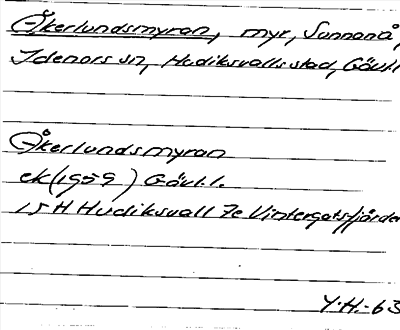 Åkerlundsmyran, myr, Sunnanå,
Idenors sn, Hudiksvalls stad, Gävl.l
Åkerlundsmyran
ek (1959) Gävl.l.
15H Hudiksvall 7e Vintergatsfjärden
Y.H.-63